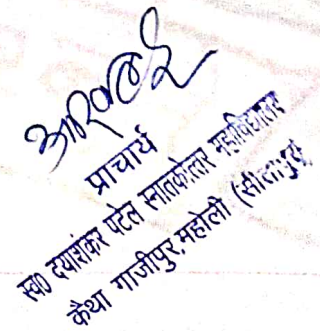 प्राचार्य
स्व० दयाशंकर पटेल स्नातकोत्तर महाविद्यालय
कैथा गाजीपुर, महोली (सीतापुर)